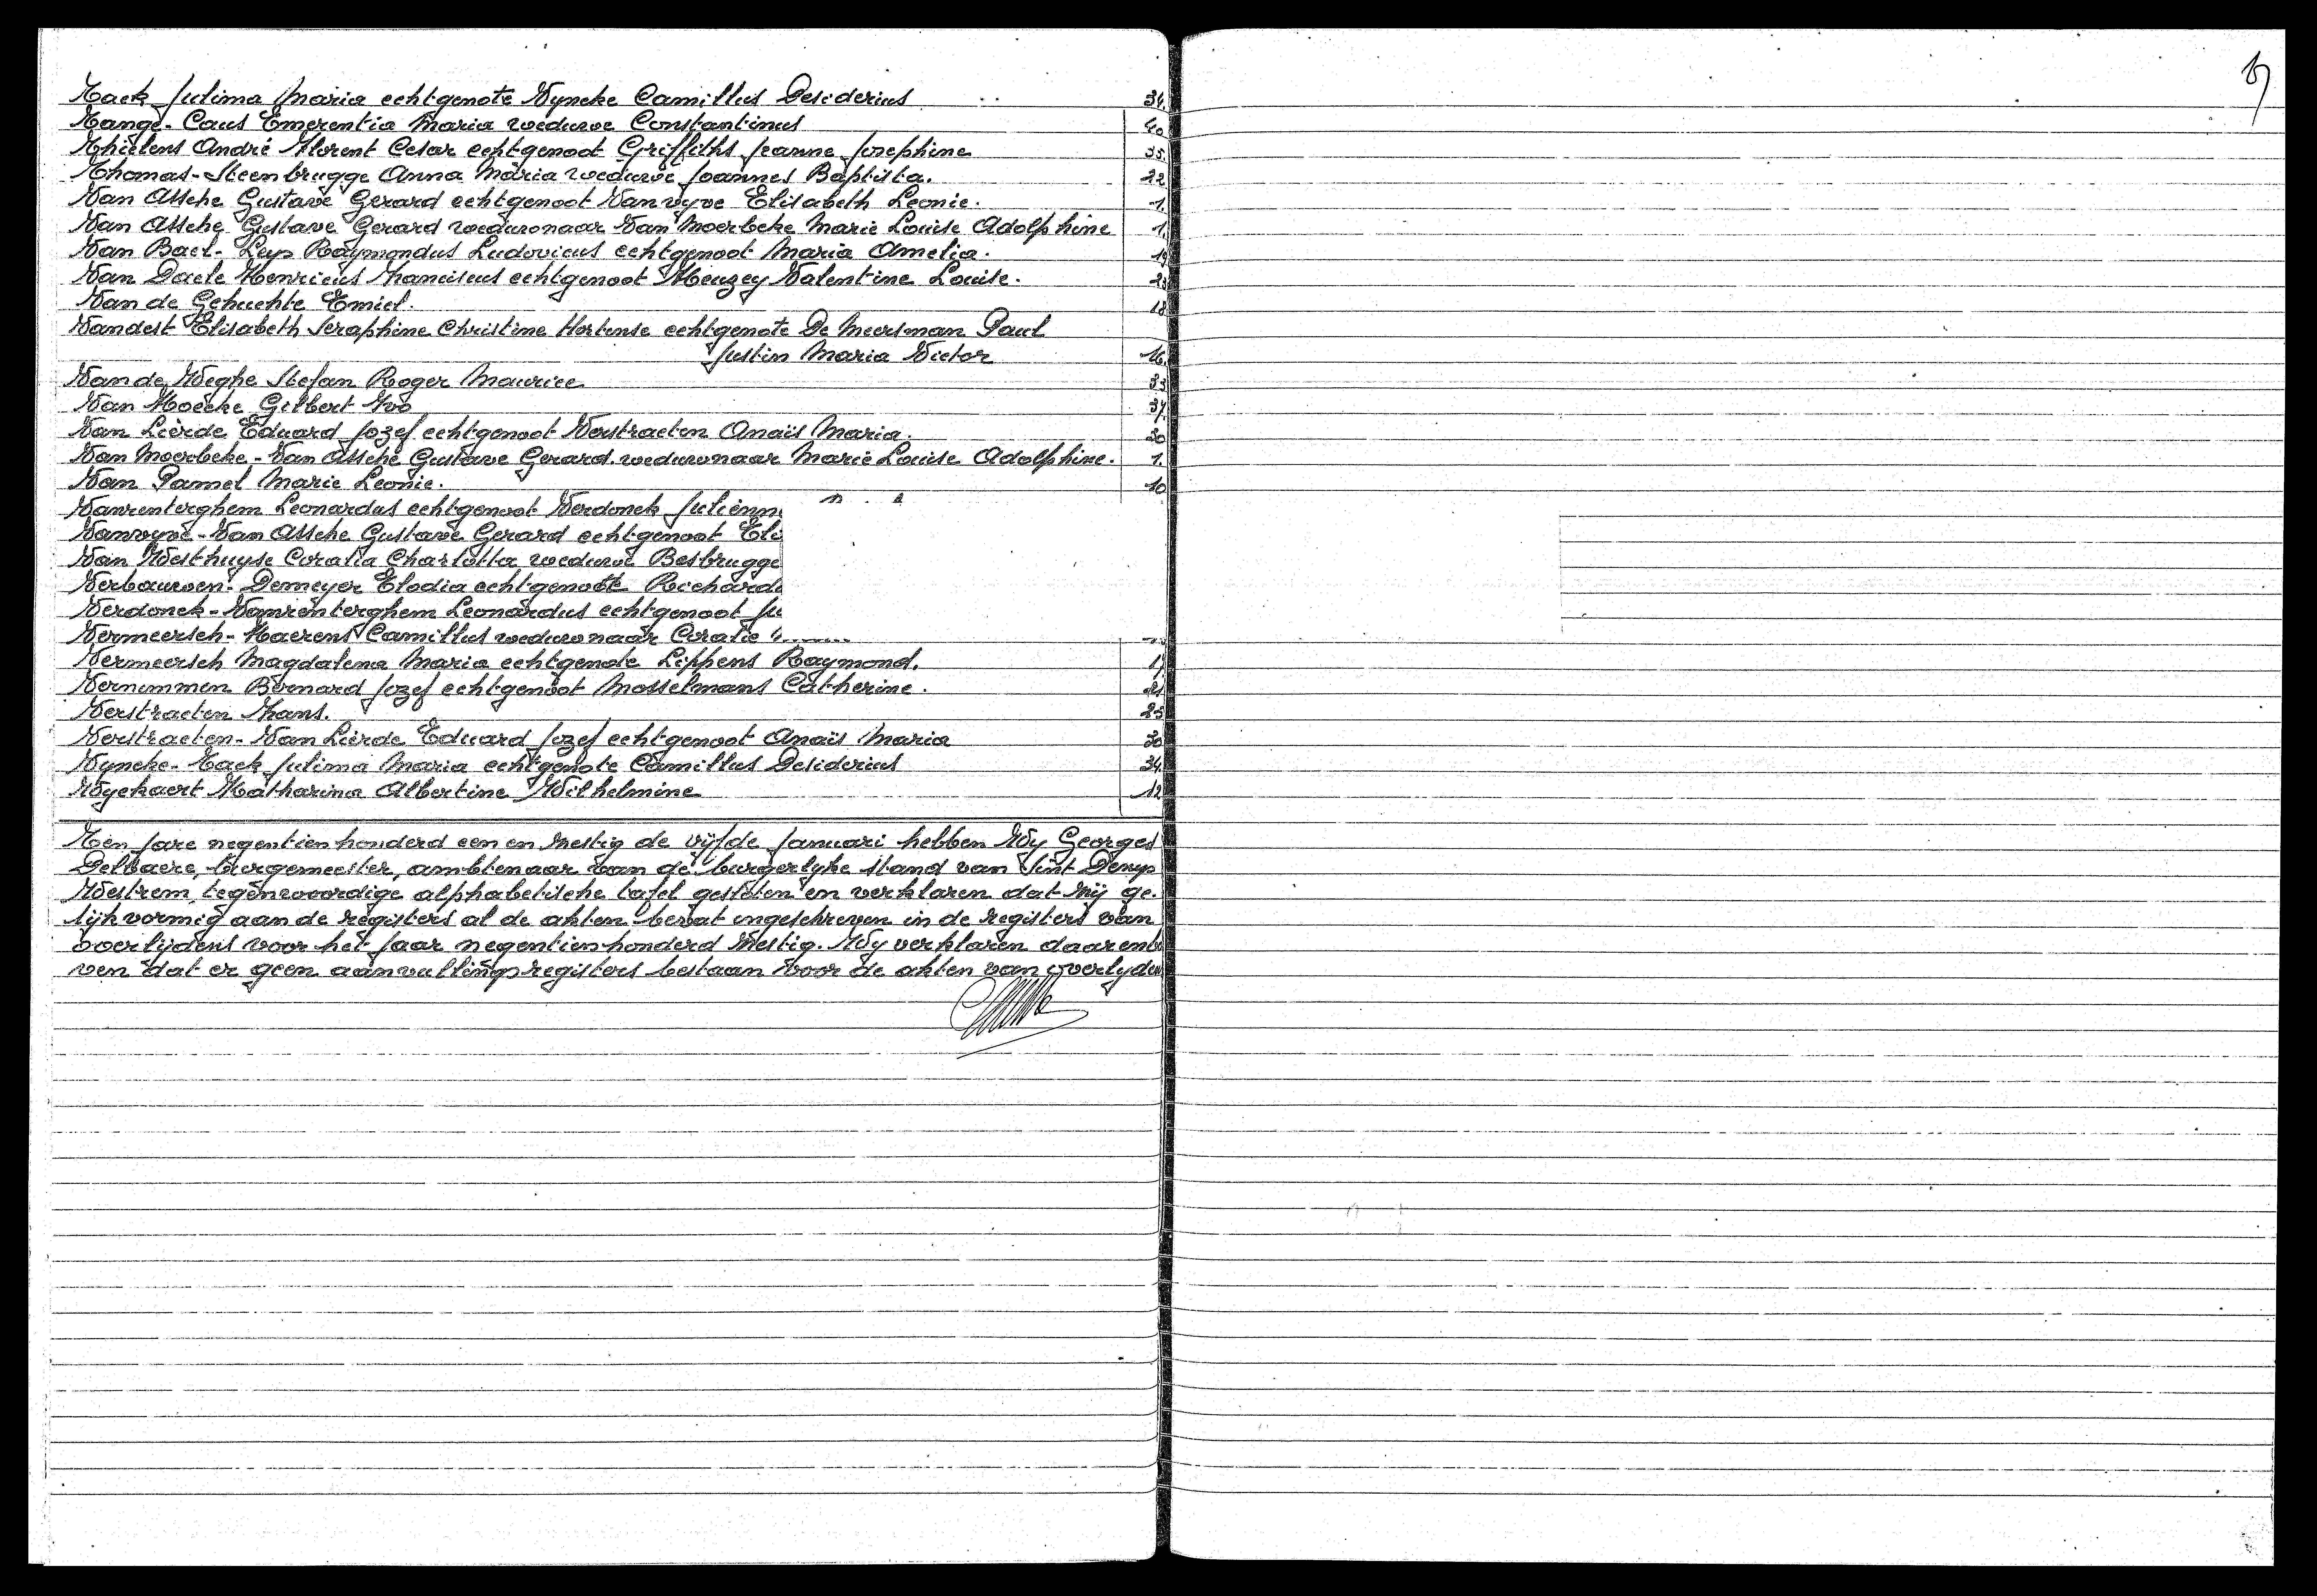 Taek Julima Maria echtgenote Vyncke Camillus Desiderius 34.
Tange-Caus Emerentia Maria weduwe Constantinus 40
Thielens André Florent Cesar echtgenoot Griffiths Jeanne Josephine 35.
Thomas-Steenbrugge Anna Maria weduwe Joannes Baptista. 22
Van Assche Gustave Gerard echtgenoot Vanvyve Elisabeth Leonie. 1.
Van Assche Gustave Gerard weduwnaar Van Moerbeke Marie Louise Adolphine 1.
Van Bael-Leys Raymondus Ludovicus echtgenoot Maria Amelia. 19
Van Daele Henricus Franciscus echtgenoot Heuzey Valentine Louise.
Van de Gehuchte Emiel. 18
Vandest Elisabeth Seraphine Christine Hortense echtgenote De Meersman Paul
Justin Maria Victor 16.
Van de Weghe Stefan Roger Maurice 33
Van Hoecke Gilbert Ivo 37.
Van Lierde Eduard Jozef echtgenoot Verstraeten Anaïs Maria. 30
Van Moerbeke-Van Assche Gustave Gerard weduwnaar Marie Louise Adolphine. 1.
Van Pamel Marie Leonie. 10
Vanrenterghem Leonardus echtgenoot Verdonck Julienn
Vanvyve-Van Assche Gustave Gerard echtgenoot Eli
Van Westhuyse Coralia Charlotta weduwe Besbrugge
Verbauwen-Demeyer Elodia echtgenote Richard
Verdonck-Vanrenterghem Leonardus echtgenoot Ju
Vermeersch-Haerens Camillus weduwnaar Coralie
Vermeersch Magdalena Maria echtgenote Lippens Raymond. 17
Vernimmen Bernard Jozef echtgenoot Mosselmans Catherine. 21
Verstraeten Frans. 25
Verstraeten-Van Lierde Eduard Jozef echtgenoot Anaïs Maria 30
Vyncke-Taek Julima Maria echtgenote Camillus Desiderius 34.
Wyckaert Katharina Albertine Wilhelmine 12
Ten jare negentienhonderd een en zestig de vijfde Januari hebben Wy Georges
Delbaere, burgemeester, ambtenaar van de burgerlyke stand van Sint Denys
Westrem, tegenwoordige alphabetische tafel gesloten en verklaren dat zij ge-
lijkvormig aan de registers al de akten bevat ingeschreven in de registers van
overlijdens voor het jaar negentienhonderd zestig. Wy verklaren daarenbo
ven dat er geen aanvullingsregisters bestaan voor de akten van overlyden